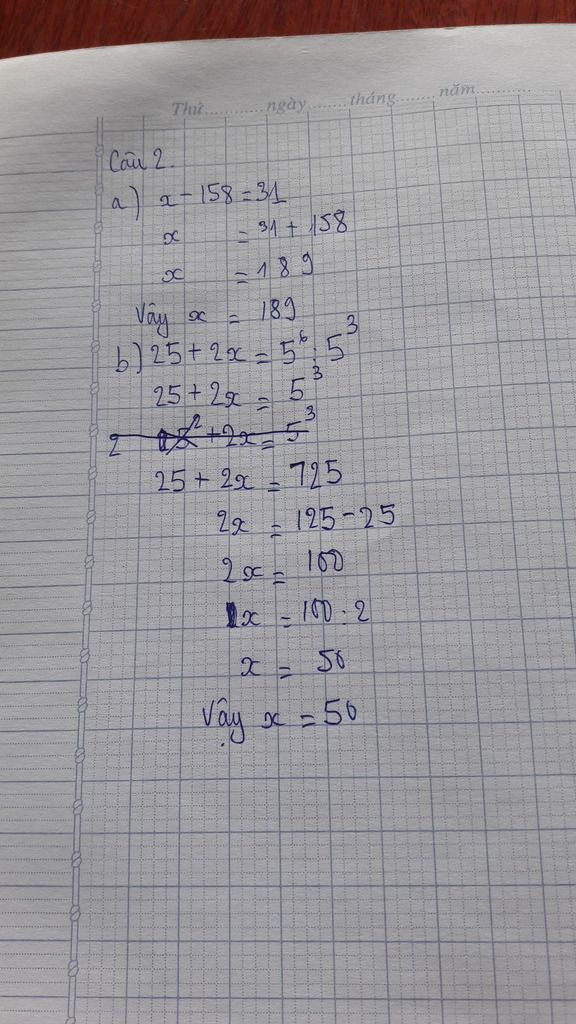 Thứ............ngày........tháng........năm............
Câu 2.
a) x - 158 = 31
x = 31 + 158
x = 189
Vậy x = 189
b) 25 + 2x = 5⁶ : 5³
25 + 2x = 5³
2 + 2x = 5³
25 + 2x = 725
2x = 125 - 25
2x = 100
x = 100 : 2
x = 50
Vậy x = 50